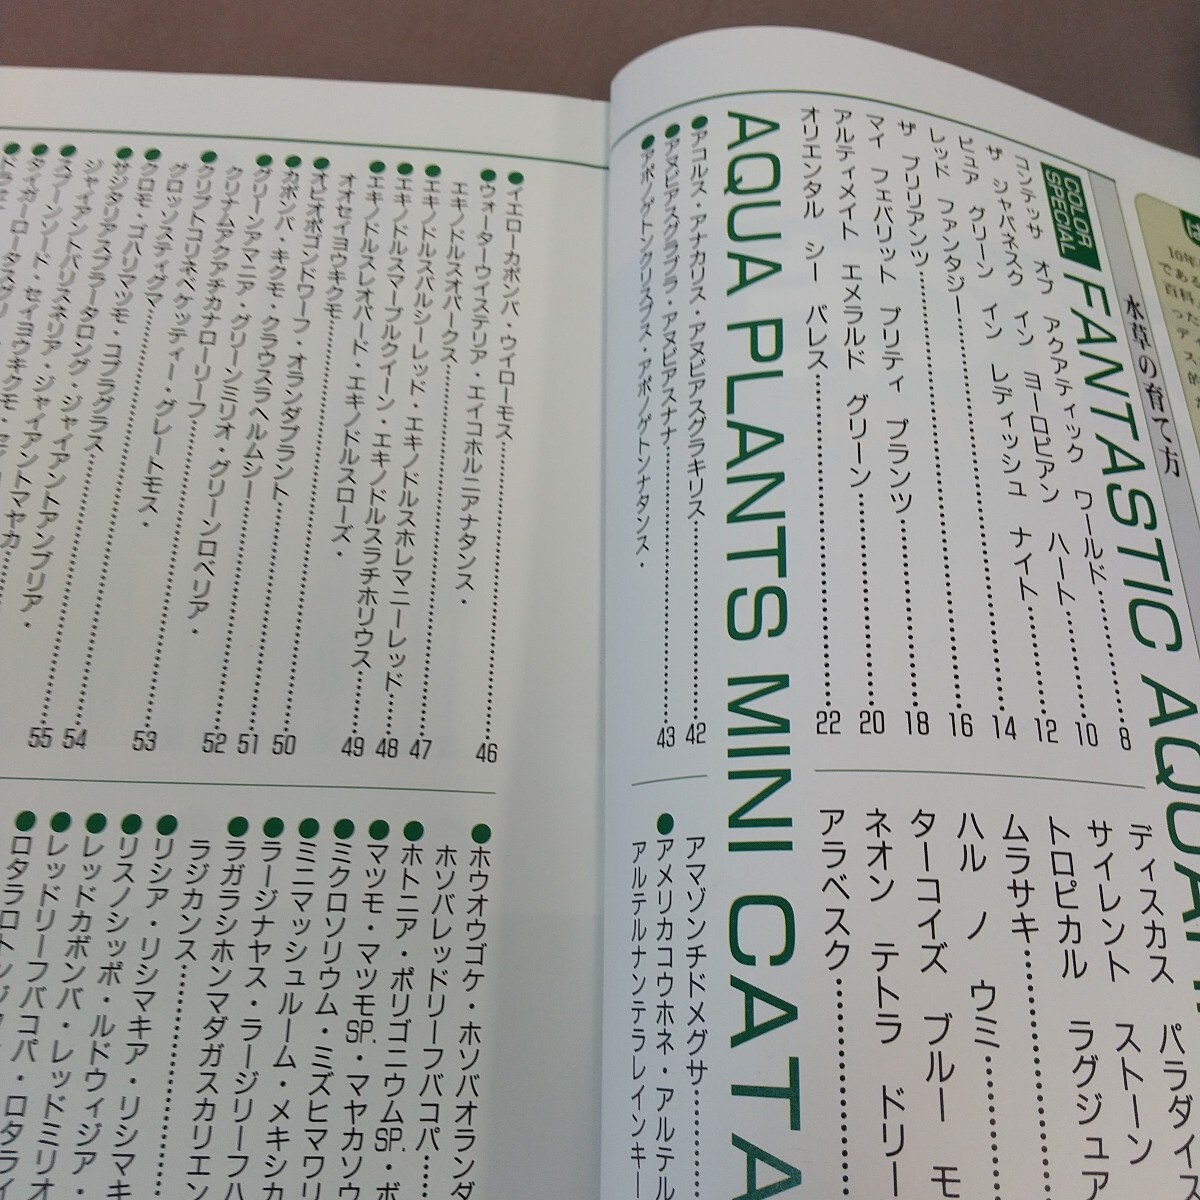 は
10年
であ
百科
った
水草の育て方
COLOR
SPECIAL
FANTASTIC AQUAR
コンテッサ オブ アクアティック ワールド……8
ザ ジャパネスク イン ヨーロピアン ハート……10
ピュア グリーン イン レディッシュ ナイト……12
レッド ファンタジー……14
ザ ブリリアンツ……16
マイ フェバリット プリティ プランツ……18
アルティメイト エメラルド グリーン……20
オリエンタル シー パレス……22
ディスカス パラダイス
サイレント ストーン
トロピカル ラグジュア
ムラサキ……
ハル ノ ウミ……
ターコイズ ブルー モ
ネオン テトラ ドリー
アラベスク……
AQUA PLANTS MINI CATA
●アコルス・アナカリス・アヌビアスグラキリス……42
●アヌビアスグラブラ・アヌビアスナナ……43
●アポノゲトンクリスプス・アポノゲトンナタンス・
アマゾンチドメグサ……
●アメリカコウホネ・アルテル
アルテルナンテラレインキー
●イエローカボンバ・ウィローモス……46
●ウォーターウィステリア・エイコホルニアナタンス・
エキノドルスオパークス……47
●エキノドルスバルシーレッド・エキノドルスホレマニーレッド……48
●エキノドルスマーブルクイーン・エキノドルスラチホリウス……49
●エキノドルスレオパード・エキノドルスローズ・
オオセイヨウキクモ……50
●オヒオポゴンドワーフ・オランダプラント……51
●カボンバ・キクモ・クラウスラヘルムシー……52
●グリーンアマニア・グリーンミリオ・グリーンロベリア・
クリナムアクアチカナローリーフ……53
●クリプトコリネベケッティー・グレートモス・
グロッソスティグマ……54
●クロモ・ゴハリマツモ・コブラグラス……55
●サジタリアスブラータロング・ジャイアントアンブリア・
ジャイアントバリスネリア・ジャイアントマヤカ……
●スターソード・セイヨウキクモ・
●タイガーロータスグリ
●ホウオウゴケ・ホソバオランダ
ホソバレッドリーフバコパ……
●ホトニア・ポリゴニウムSP.・ポ
●マツモ・マツモSP.・マヤカソウ
●ミクロソリウム・ミズヒマワリ
●ミニマッシュルーム・メキシカ
●ラージナヤス・ラージリーフハ
●ラガラシホンマダガスカリエン
ラジカンス……
●リシア・リシマキア・リシマキ
●リスノシッポ・ルドウィジア・
●レッドカボンバ・レッドミリオ
●レッドリーフバコパ・ロタライ